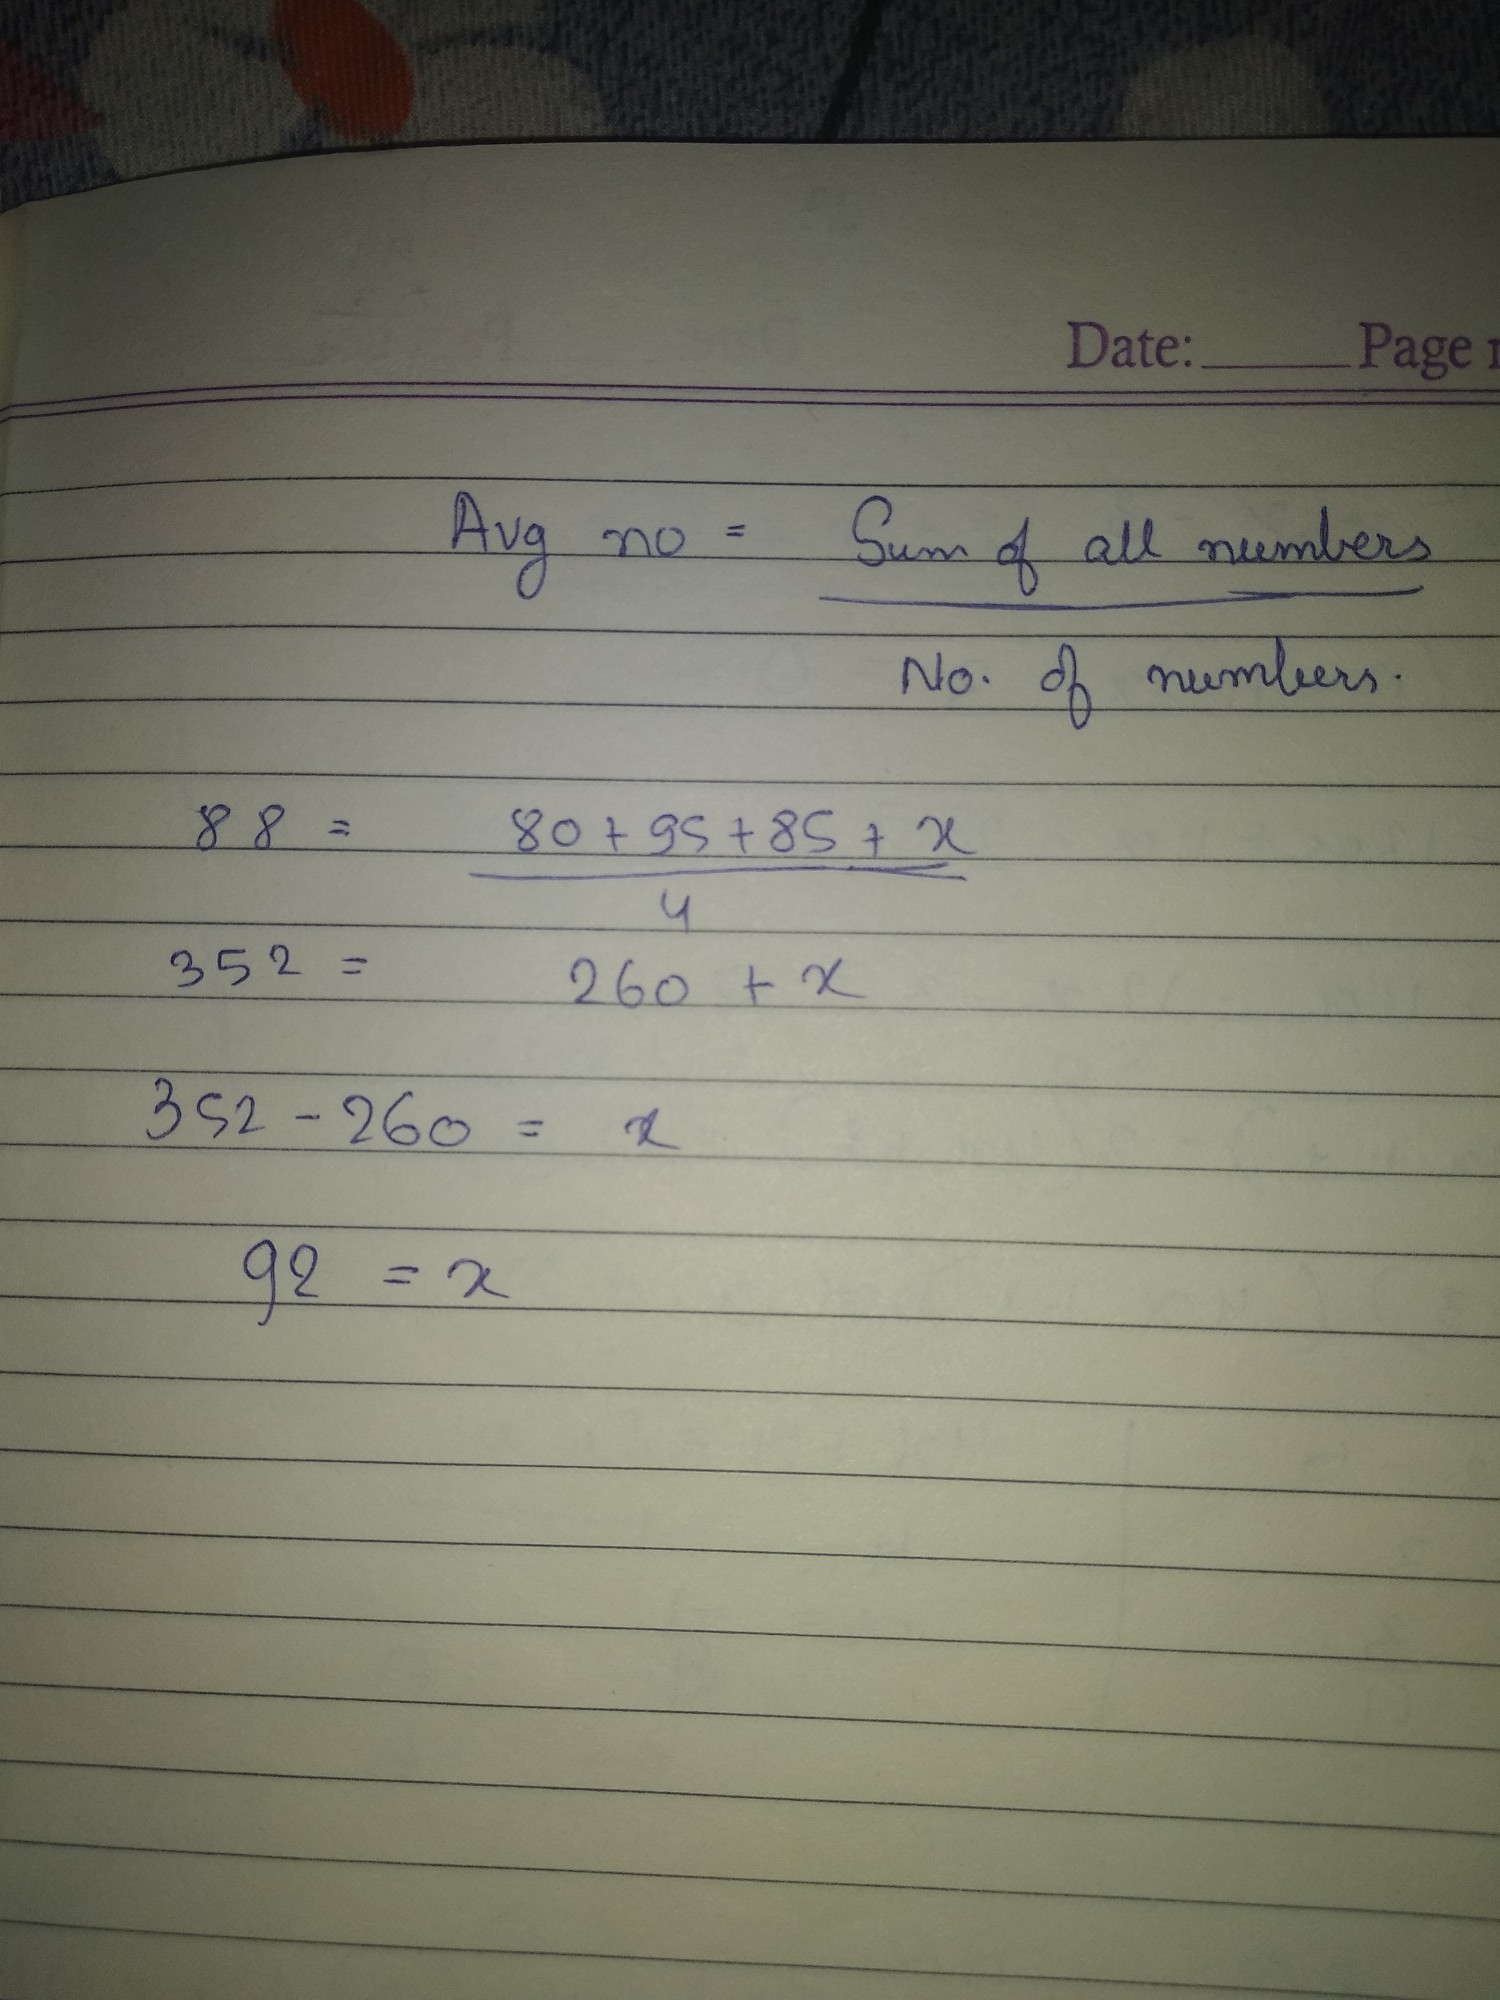 Date:_____ Page
Avg no = Sum of all numbers
No. of numbers.
88 = 80 + 95 + 85 + x
4
352 = 260 + x
352 - 260 = x
92 = x